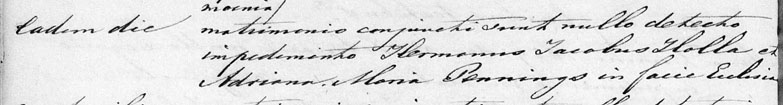 moenia
Eadem die matrimonio conjuncti sunt nullo detecto
impedimento Hermanus Jacobus Holla et
Adriana Maria Pennings in facie Eclisia